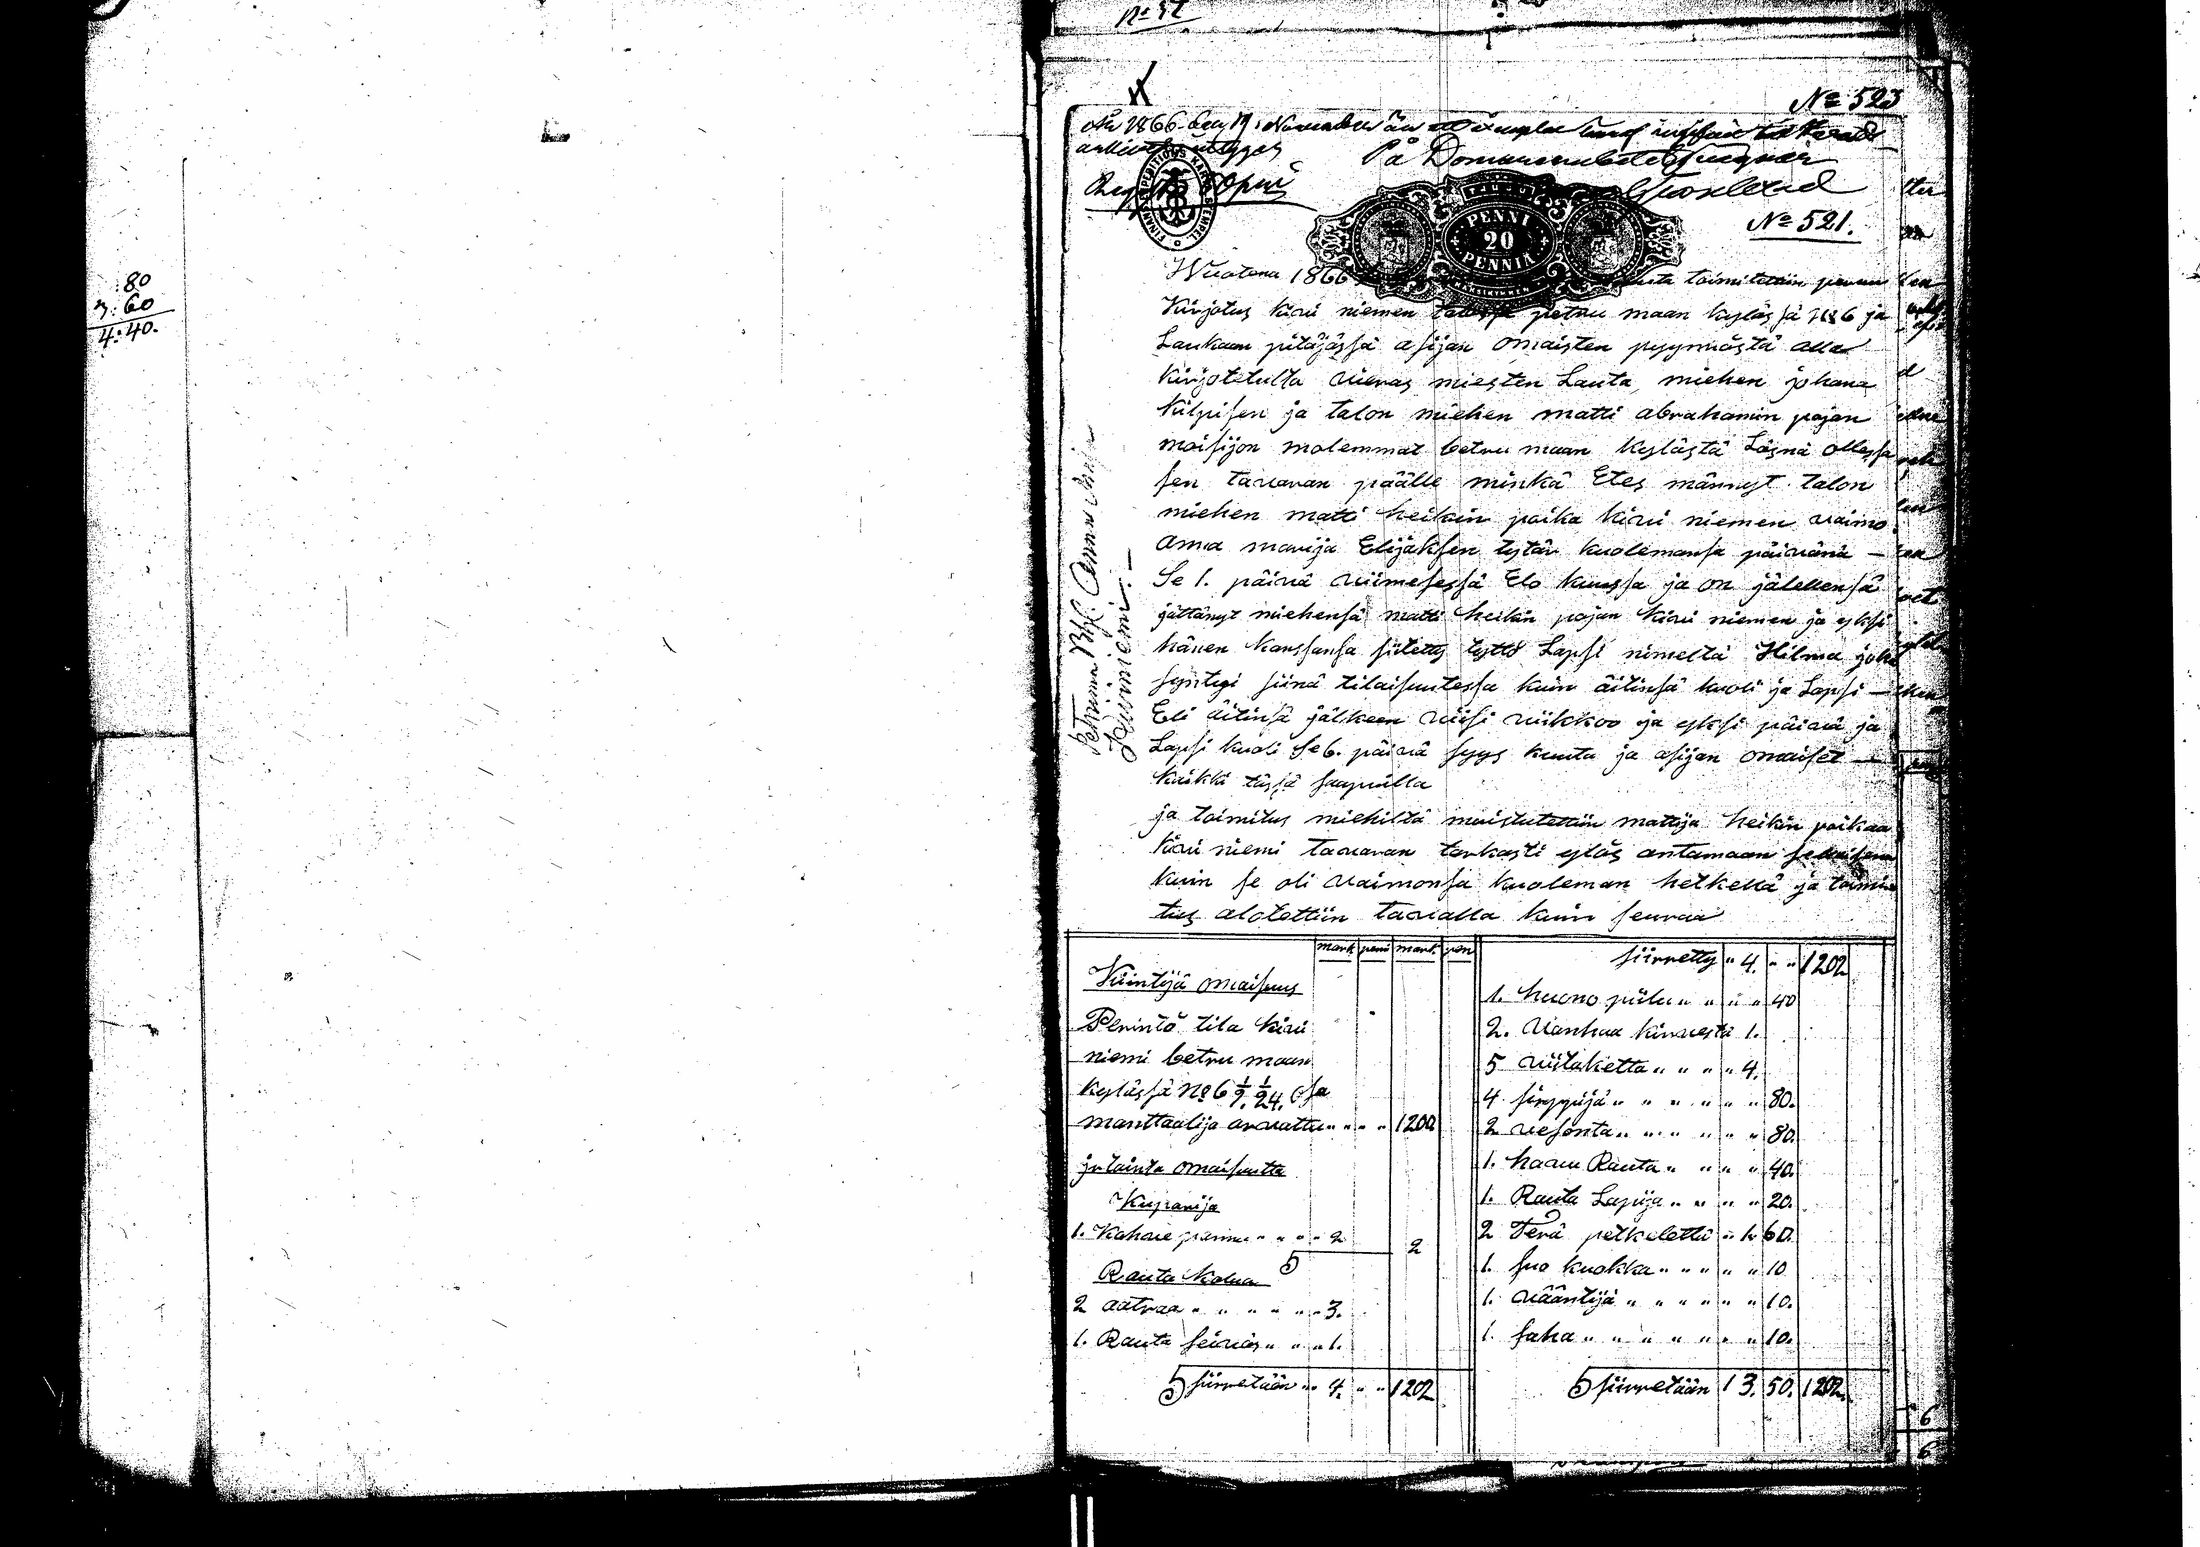 No 52
:80
3:60
4:40.
No 523
År 1866 den 17 November
På Domareembetets vägnar
No 521.
PENNI
20
PENNIÄ
Wuotena 1866 toimitettiin perun
Kirjotus kivi niemen talossa petru maan kylässä No 6 ja
Laukaan pitäjässä asijan omaisten pyynnöstä alla
kirjotetulta vieras miesten Lauta miehen johana
Kilpisen ja talon miehen matti abrahamin pojan
moisijon molemmat betru maan kylästä Läsnä ollessa
sen tavaran päälle minkä Etes männyt talon
miehen matti heikin poika kivi niemen vaimo
anna marija Elijaksen tytär kuolemansa päivänä —
Se 1. päivä viimesessä Elo kuussa ja on jälellensä
jättänyt miehensä matti heikin pojan kivi niemen ja yksi
hänen kanssansa siitetty tyttö Lapsi nimeltä Hilma joka
syntyi siinä tilaisuutessa kuin äitinsä kuoli ja Lapsi —
Eli äitinsä jälkeen viisi viikkoo ja yksi päivä ja
Lapsi kuoli Se 6. päivä syys kuuta ja asijan omaiset —
kaikki tässä saapuilla
ja toimitus miehiltä muistutettiin mattija heikin poikaa
kivi niemi tavaran tarkasti ylös antamaan sellaisena
kuin se oli vaimonsa kuoleman hetkellä ja toimi
tus alotettiin tavalla kuin seuraa
mark peni mark. pen
Kiintijä omaisuus
Perintö tila kivi
niemi betru maan
kylässä No 6 1/9. 1/24. Osa
manttaalija arvattu " " " 1200
ja lointa omaisutta
Kuparija
1. Kahvie pannu " " " 2
2
Rauta kalua
2 aatraa " " " " " 3.
1. Rauta seiväs " " " 1.
siirretään " 4. " " 1202
siirretty " 4. " " 1202
1. huono piilu " " " " 40
2. vanhaa kirvestä 1.
5 viitaketta " " " " 4.
4 sirppijä " " " " " " 80.
2 vesonta " " " " " " 80.
1. haru Rauta " " " " 40.
1. Rauta Lapija " " " " 20.
2 Terä petkeletta " 1. 60.
1. suo kuokka " " " " " 10
1. vääntijä " " " " " " 10.
1. saha " " " " " " " 10.
siirretään 13. 50. 1202.
6
6